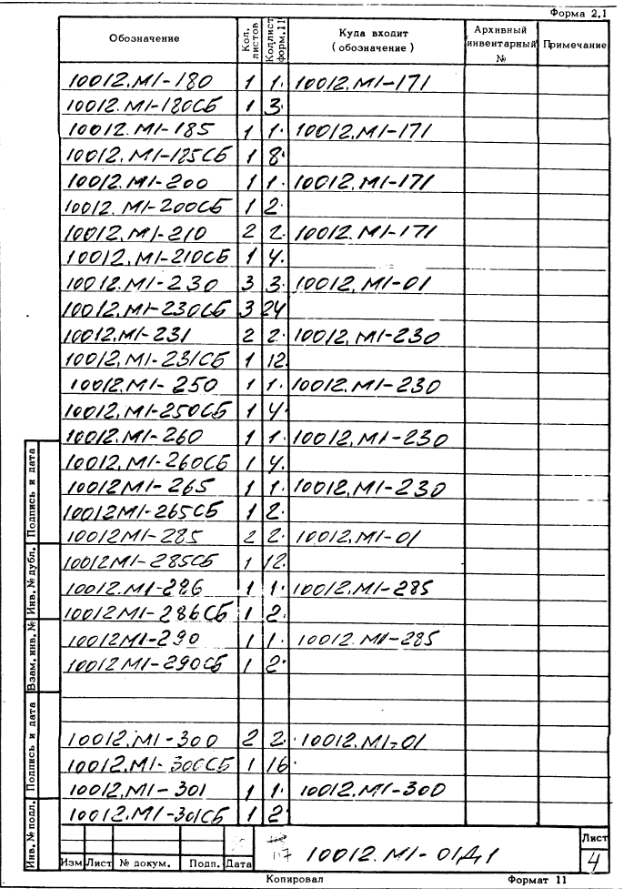 Форма 2.1
Обозначение Кол. листов Кол.лист форм.11 Куда входит (обозначение) Архивный инвентарный № Примечание
10012.М1-180 1 1. 10012.М1-171
10012.М1-180СБ 1 3.
10012.М1-185 1 1. 10012.М1-171
10012.М1-185СБ 1 8.
10012.М1-200 1 1. 10012.М1-171
10012.М1-200СБ 1 2.
10012.М1-210 2 2. 10012.М1-171
10012.М1-210СБ 1 4.
10012.М1-230 3 3. 10012.М1-01
10012.М1-230СБ 3 24
10012.М1-231 2 2. 10012.М1-230
10012.М1-231СБ 1 12.
10012.М1-250 1 1. 10012.М1-230
10012.М1-250СБ 1 4.
10012.М1-260 1 1. 10012.М1-230
10012.М1-260СБ 1 4.
10012М1-265 1 1. 10012.М1-230
10012М1-265СБ 1 2.
10012.М1-285 2 2. 10012.М1-01
10012М1-285СБ 1 12.
10012.М1-286 1 1. 10012.М1-285
10012М1-286СБ 1 2.
10012М1-290 1 1. 10012.М1-285
10012М1-290СБ 1 2.
10012.М1-300 2 2. 10012.М1-01
10012.М1-300СБ 1 16.
10012.М1-301 1 1. 10012.М1-300
10012.М1-301СБ 1 2.
Подпись и дата
Инв. № дубл.
Взам. инв. №
Подпись и дата
Инв. № подл.
117 10012.М1-01Д1
Лист
4
Изм Лист № докум. Подп. Дата
Копировал Формат 11